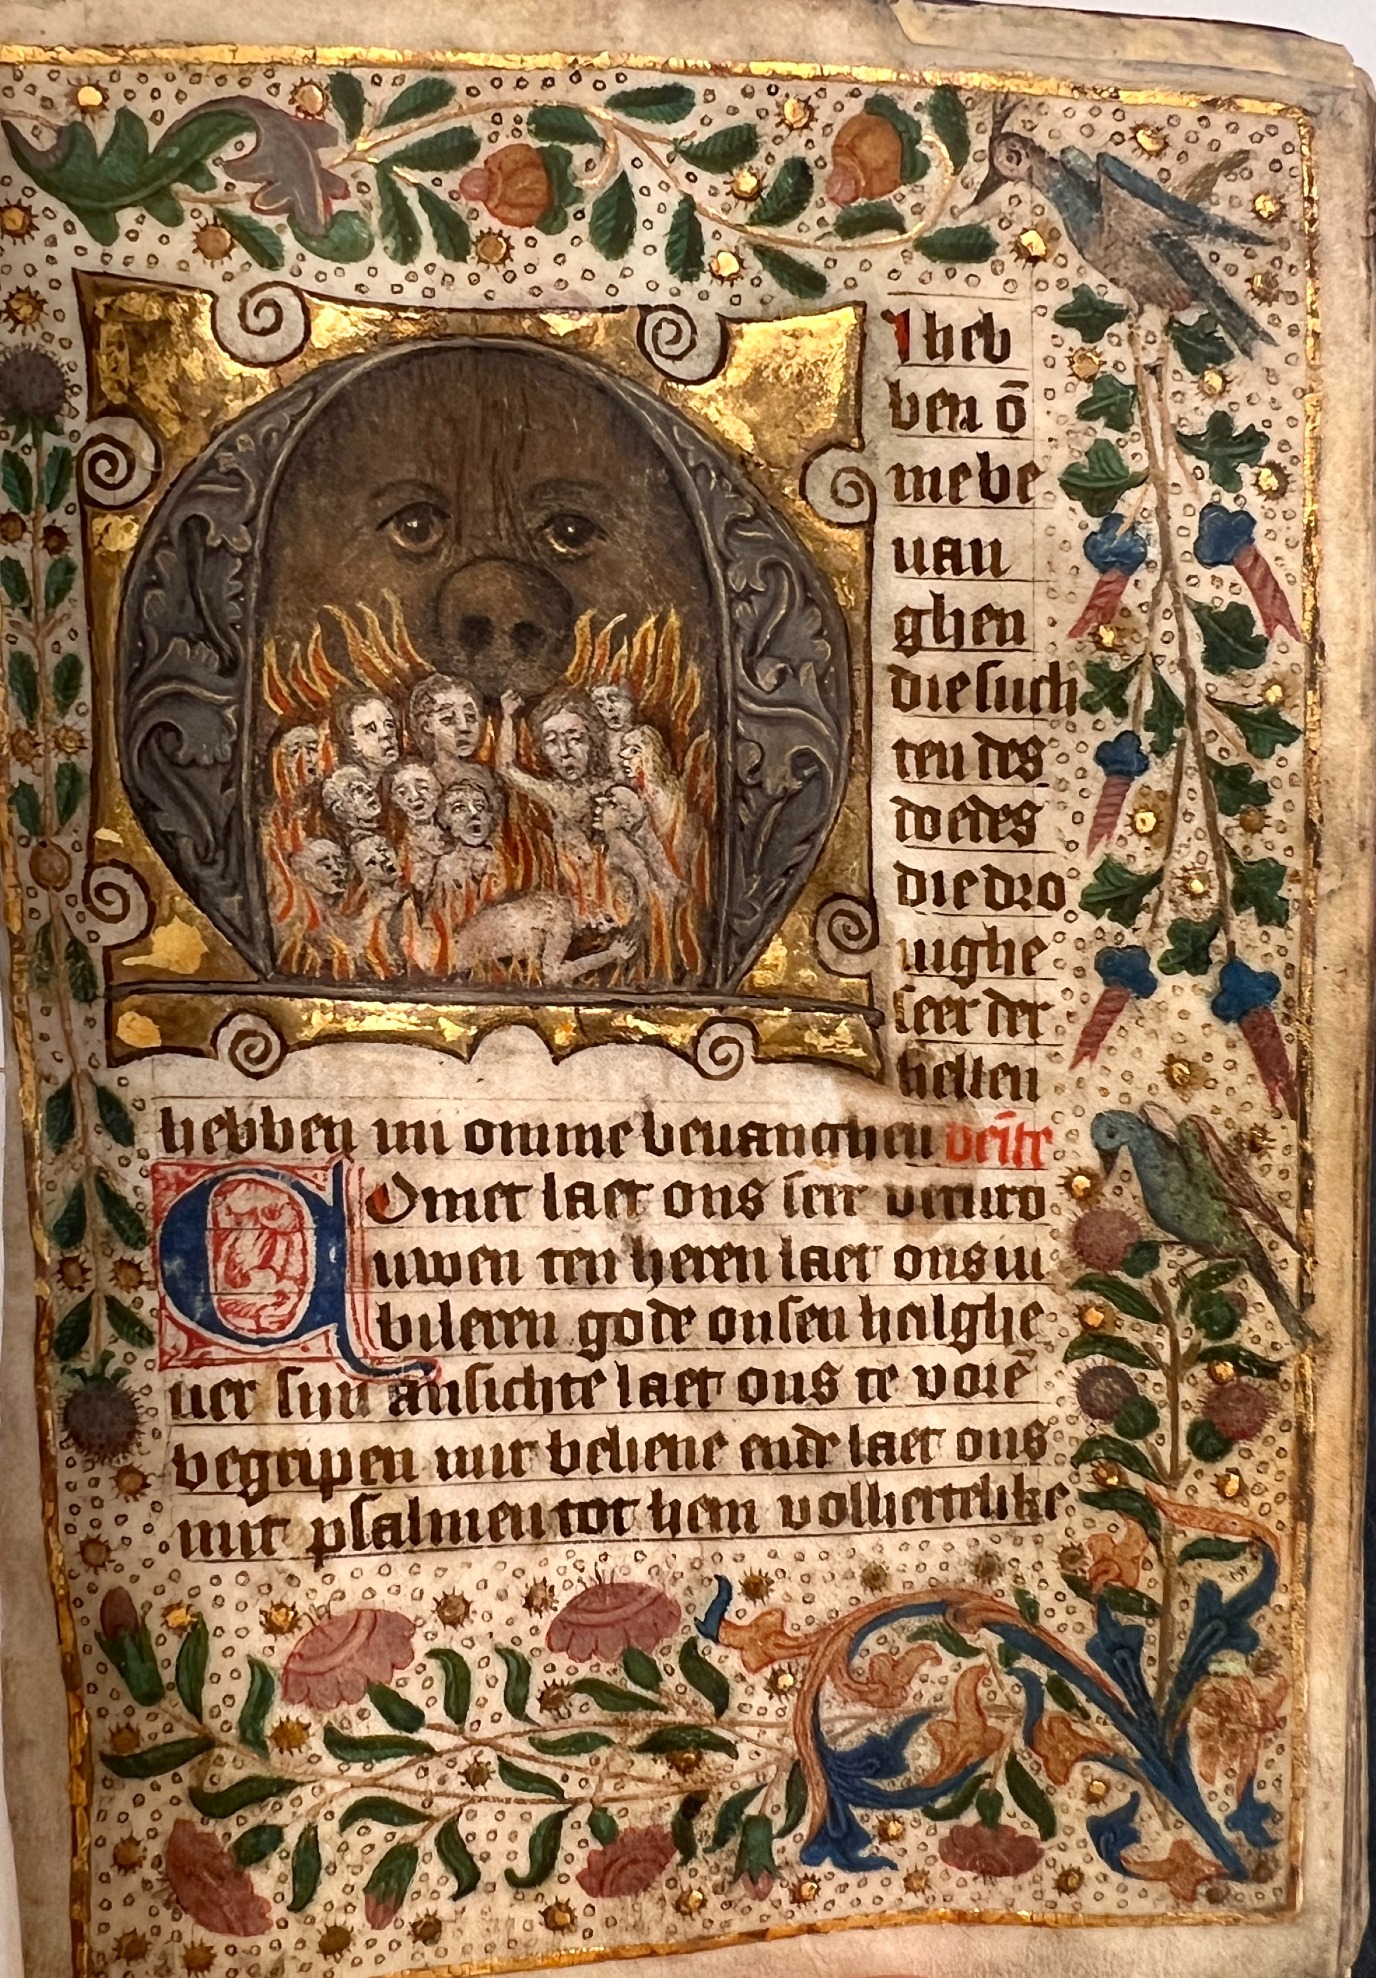 I heb
ben õ
me be
uan
ghen
die such
ten des
doedes
die dro
uighe
seer der
hellen
hebben mi omme beuanghen
Omet laet ons seer veruro
uwen ten heren laet ons iu
bileren gode onsen heilghe
uer sijn ansichte laet ons te vorẽ
begripen mit beliene ende laet ons
mit psalmen tot hem volhertelike